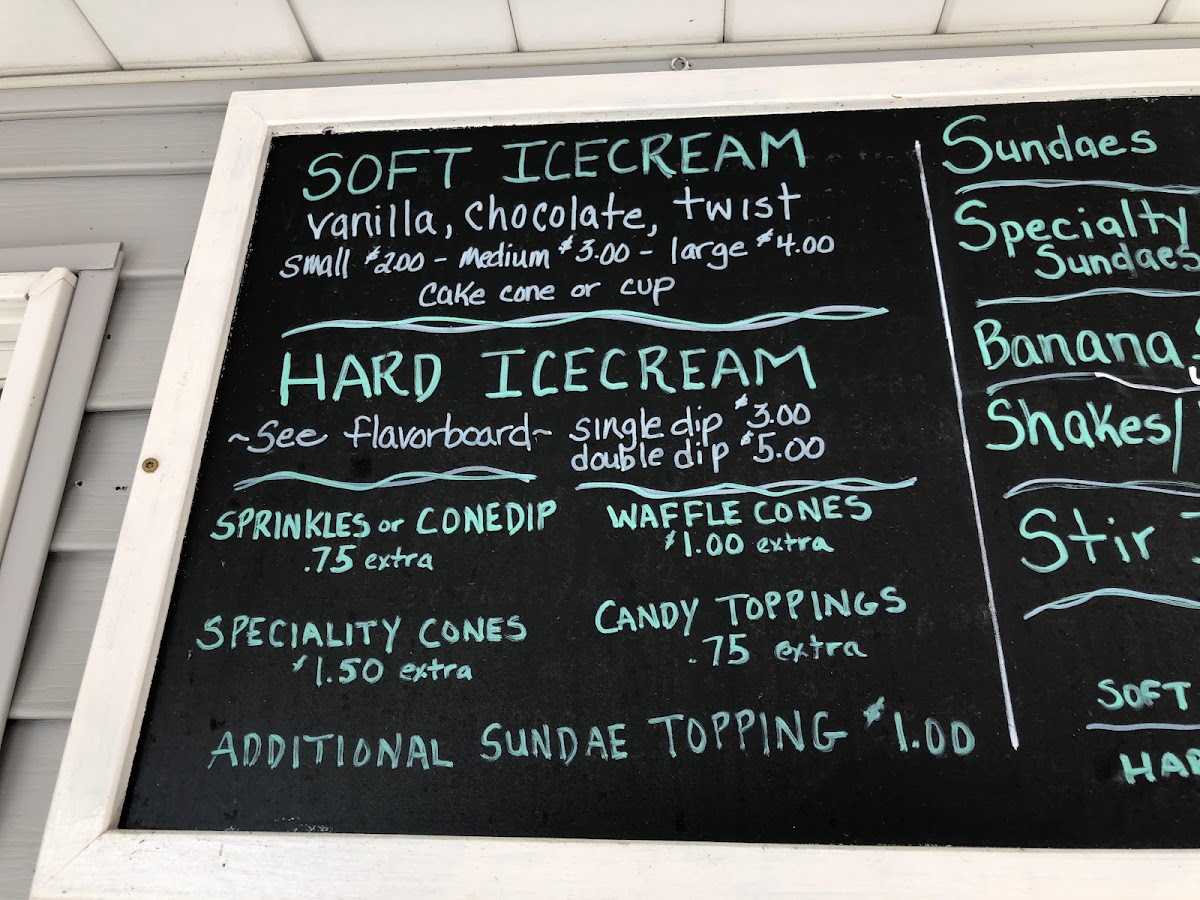 SOFT ICECREAM
vanilla, chocolate, twist
small $2.00 - medium $3.00 - large $4.00
cake cone or cup
HARD ICECREAM
~See flavorboard~
single dip $3.00
double dip $5.00
SPRINKLES or CONEDIP
.75 extra
WAFFLE CONES
$1.00 extra
SPECIALITY CONES
$1.50 extra
CANDY TOPPINGS
.75 extra
ADDITIONAL SUNDAE TOPPING $1.00
Sundaes
Specialty
Sundaes
Banana
Shakes/
Stir
SOFT